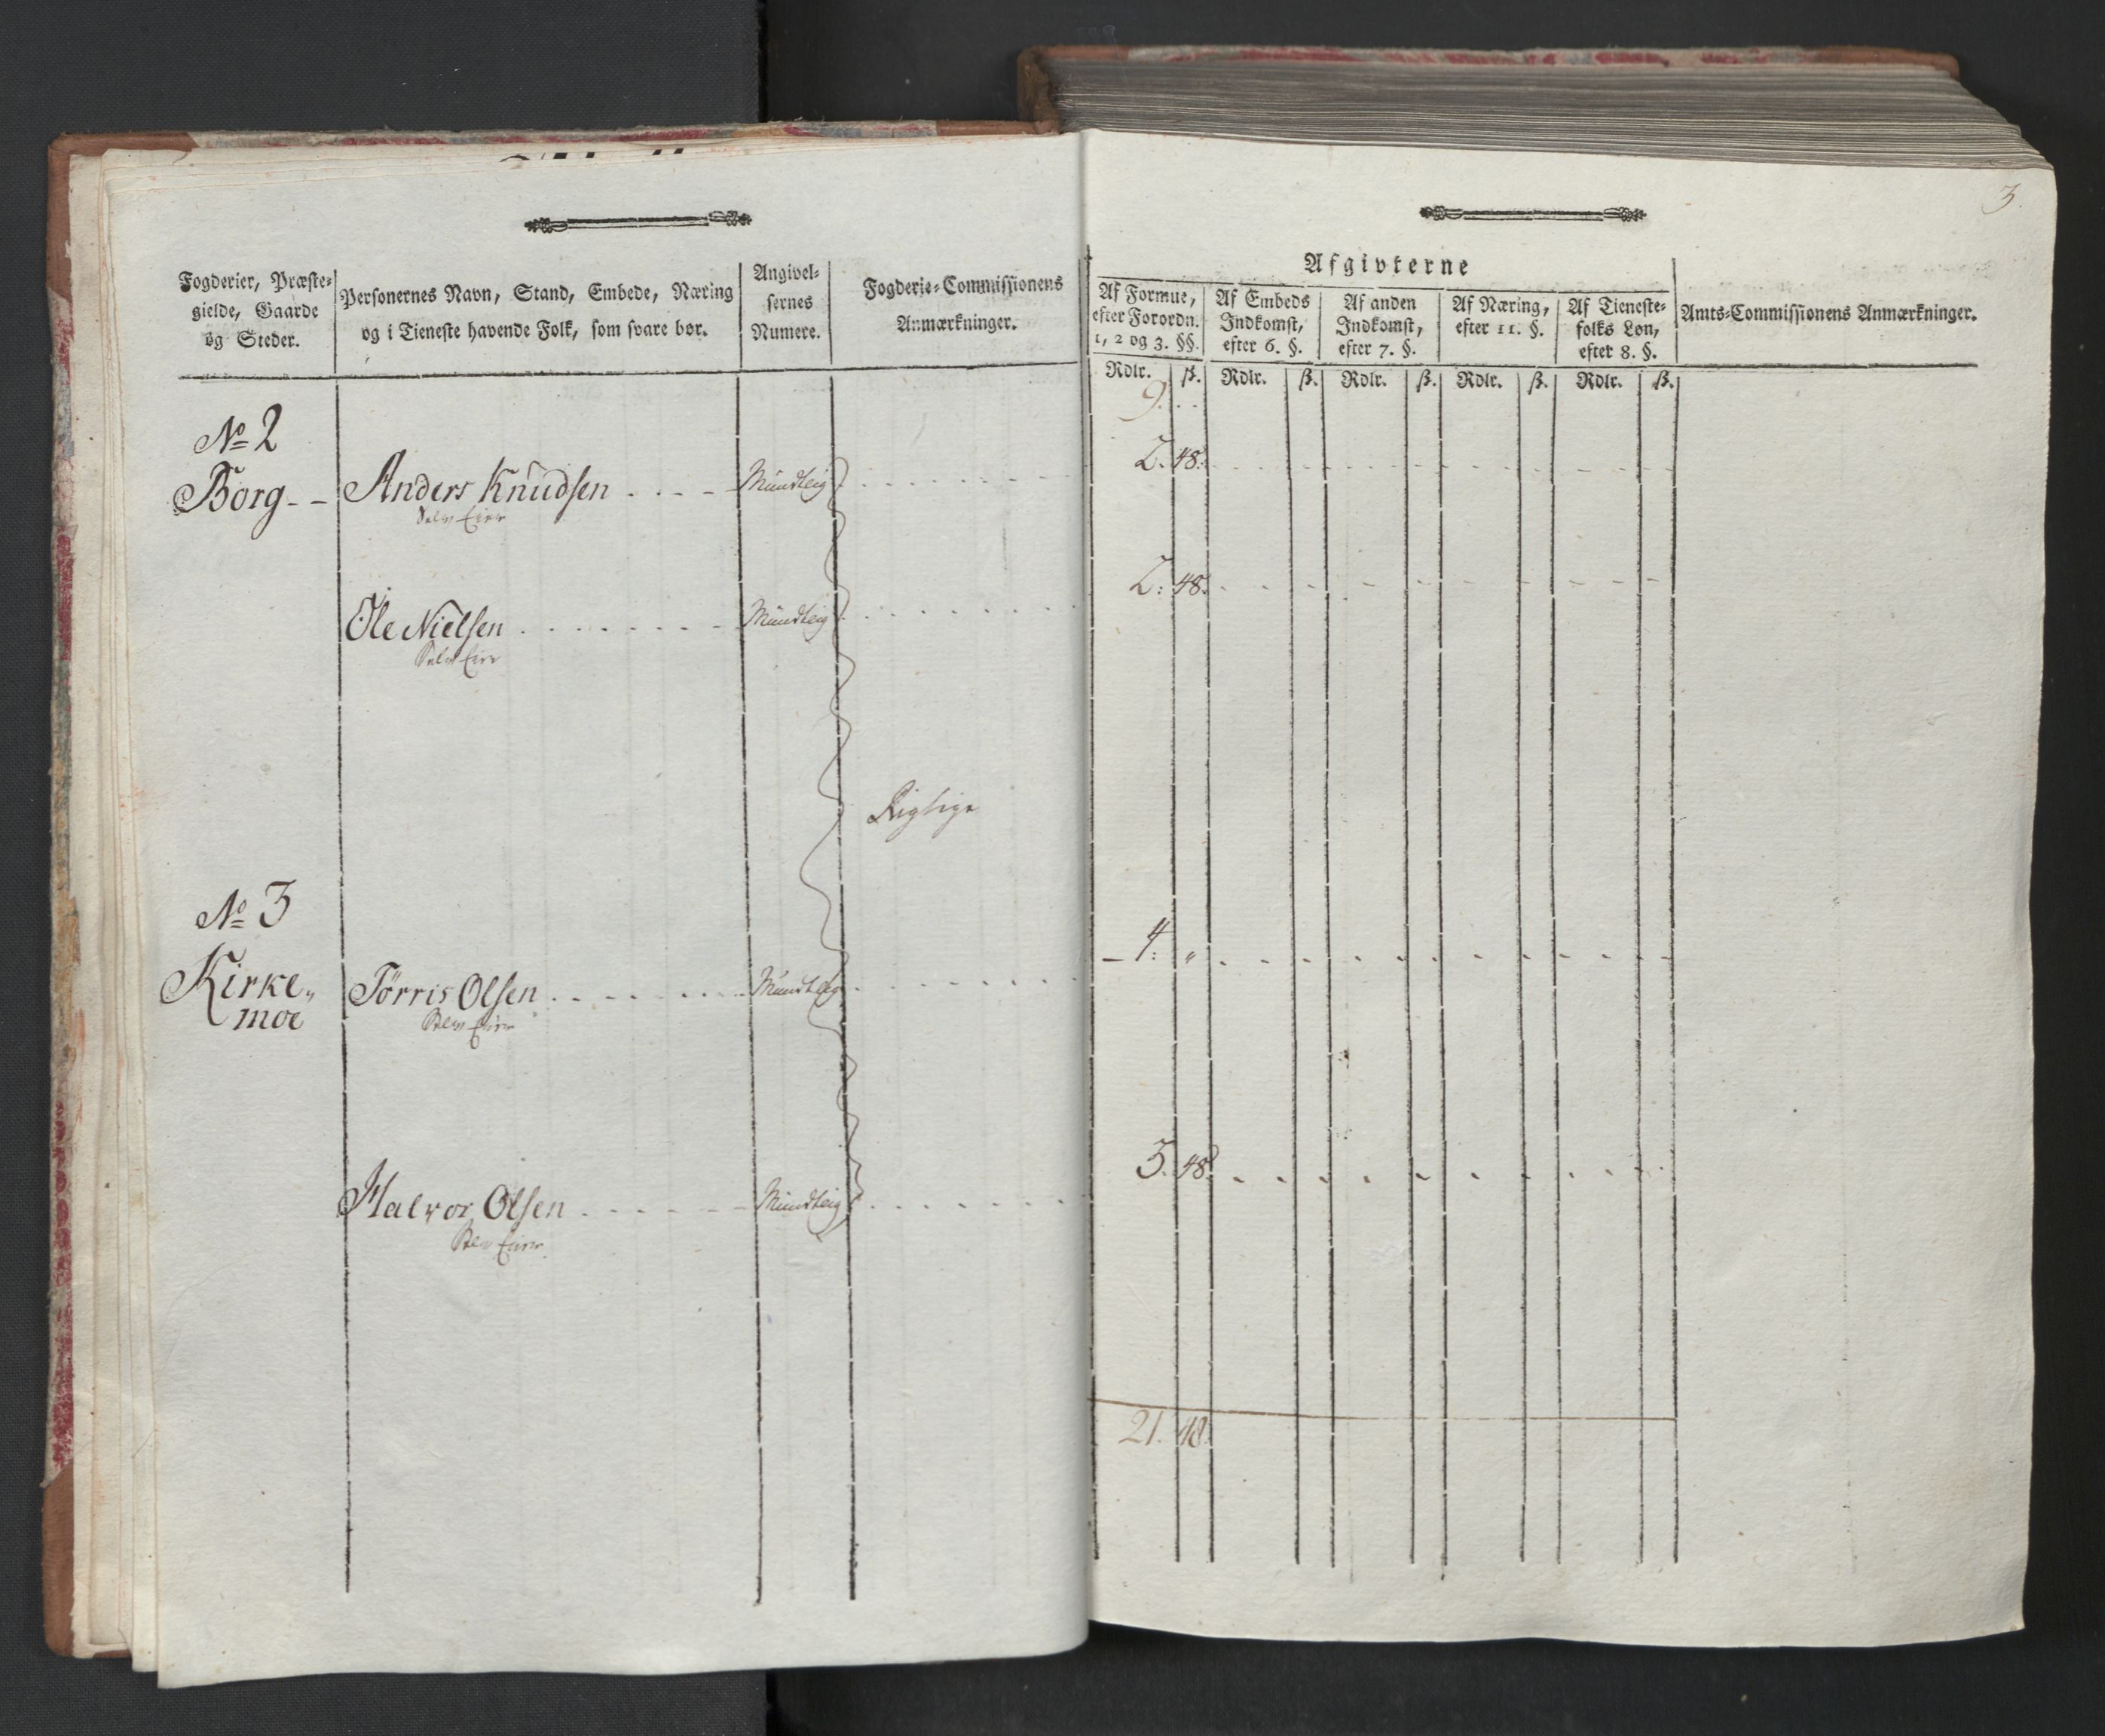 3.
Fogderier, Præste-
gielde, Gaarde
og Steder.
Personernes Navn, Stand, Embede, Næring
og i Tieneste havende Folk, som svare bør.
Angivel-
sernes
Numere.
Fogderie-Commissionens
Anmærkninger.
Afgivterne
Af Formue,
efter Forordn.
1, 2 og 3. §§.
Af Embeds
Indkomst,
efter 6. §.
Af anden
Indkomst,
efter 7. §.
Af Næring,
efter 11. §.
Af Tieneste-
folks Løn,
efter 8. §.
Amts-Commissionens Anmærkninger.
Rdlr. ß. Rdlr. ß. Rdlr. ß. Rdlr. ß. Rdlr. ß.
9.
No 2
Borg - - Anders Knudsen Mundtlig 2. 48.
Selv Eier
Ole Nielsen Mundtlig 2: 48.
Selv Eier
Rigtige
No 3
Kirke-
moe
Tørris Olsen Mundtlig 4: "
Selv Eier
Halvor Olsen Mundtlig 3. 48.
Selv Eier
21. 48.